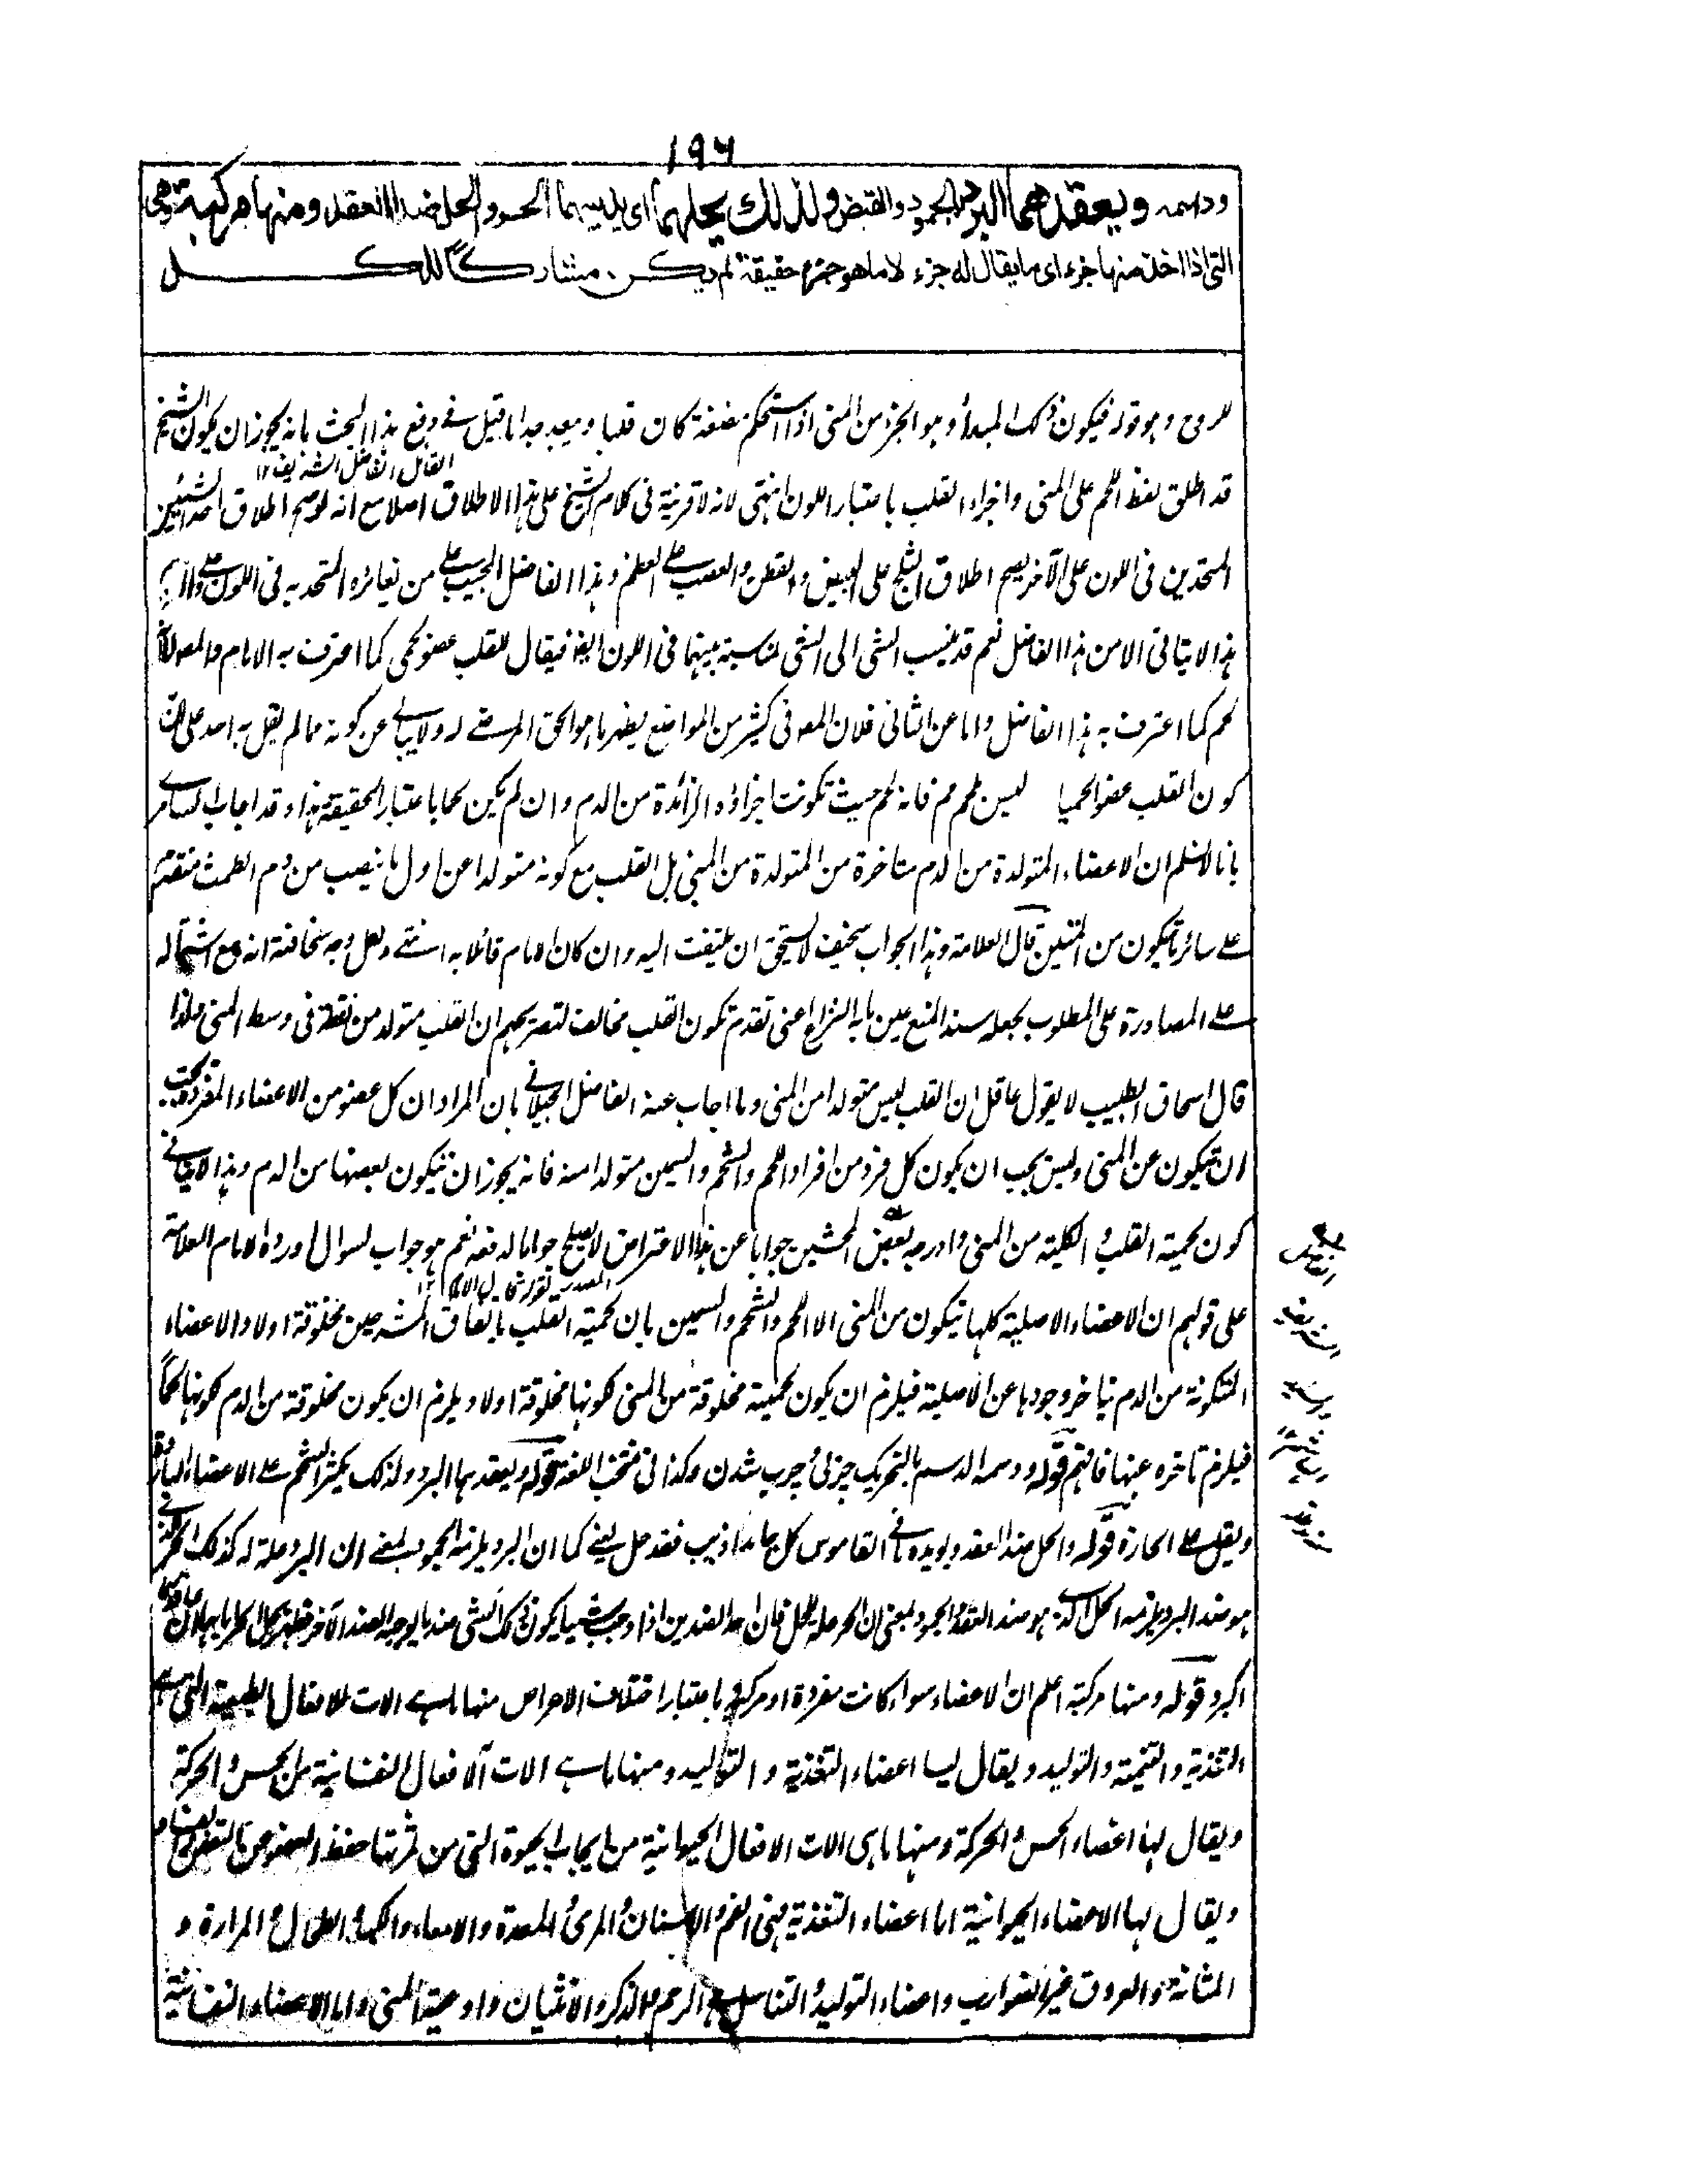 ١٩٦
ودسمه ويعقدهما البرد بالجمود والقبض ولذلك يحلهما اى يذيبهما الحر والحل ضد العقد ومنها مركبة وهى
التى اذا اخذ منها جزء اى ما يقال له جزء لا ما هو جزء حقيقة لم يكن مشاركا للكل
وهو قوله فيكون ذلك المبدأ وهو الجزء من المنى اذا استحكم مضغة كان قلبا وبعد ما قيل فى دفع هذا البحث بانه يجوز ان يكون الشيخ
القائل الفاضل الشريف ١٢
قد اطلق لفظ اللحم على المنى واجزاء القلب باعتبار اللون انتهى لانه لا قرينة فى كلام الشيخ على هذا الاطلاق اصلا مع انه لو صح اطلاق احد الشيئين
المتحدين فى اللون على الآخر يصح اطلاق الثلج على البيض والقطن والعصب على العظم وهذا الفاضل المجيب من المتحد به فى اللون
هذا لا يتاتى الا من هذا الفاضل نعم قد ينسب الشئ الى الشئ لمناسبة بينهما فى اللون ايضا فيقال للقلب عضو لحمى كما اعترف به الامام
لحم كما اعترف به هذا الفاضل واما عن الثانى فلان المص فى كثير من المواضع يظهر ما هو الحق المرضى له ولا يبالى عن كونه مما لم يقل به احد على ان
كون القلب عضوا لحميا ليس بلحم مم فانه لحم حيث تكونت اجزاؤه الزائدة من الدم وان لم يكن لحما باعتبار الحقيقة هذا وقد اجاب السامرى
بانا لا نسلم ان الاعضاء المتولدة من الدم متاخرة من المتولدة من المنى بل القلب مع كونه متولدا عن اول ما ينصب من دم الطمث متقدم
على سائر ما يكون من المنيين قال العلامة وهذا الجواب سخيف لا يستحق ان يلتفت اليه وان كان الامام قائلا به انتهى ولعل وجه سخافته انه مع اشتماله
على المصادرة على المطلوب بجعله سند المنع عين ما به النزاع اعنى تقدم تكون القلب مخالف لتصريحهم ان القلب متولد من نقطة فى وسط المنى ولذا
قال اسحاق الطبيب لا يقول عاقل ان القلب ليس متولدا من المنى وما اجاب عنه الفاضل الجيلانى بان المراد ان كل عضو من الاعضاء المفردة يجب
ان يتكون عن المنى وليس يجب ان يكون كل فرد من افراد اللحم والشحم والسمين متولدا منه فانه يجوز ان يتكون بعضها من الدم وهذا لا ينافى
كون لحمية القلب والكلية من المنى وما اورد بعض المحشين جوابا عن هذا الاعتراض لا يصلح جوابا له فعه نعم هو جواب لسوال اورده الامام العلامة
على قولهم ان الاعضاء الاصلية كلها يتكون من المنى الا اللحم والشحم والسمين بان لحمية القلب باتفاق المشرحين مخلوقة اولا والاعضاء
المتكونة من الدم يتاخر وجودها عن الاصلية فيلزم ان يكون لحمية مخلوقة من المنى لكونها مخلوقة اولا ويلزم ان يكون مخلوقة من الدم لكونها لحما
فيلزم تاخره عنها فافهم قوله ودسمه الدسم بالتحريك چربى وچرب شدن وكذا فى منتخب اللغة قوله ويعقدهما البرد ولذلك يكثر الشحم على الاعضاء الباردة
ويقل على الحارة قوله والحل ضد العقد ويويده ما فى القاموس كل جامد اذيب فقد حل يعنى كما ان البرد يلزمه الجمود بمعنى ان البرد علة له كذلك الحر الذى
هو ضد البرد يلزمه الحل الذى هو ضد العقد والجمود بمعنى ان الحر علة للحل فان احد الضدين اذا وجب شيا يكون ذلك الشئ ضد ما يوجبه الضد الآخر
قوله ومنها مركبة اعلم ان الاعضاء سواء كانت مفردة او مركبة باعتبار اختلاف الاعراض منها ما هى الات للافعال الطبيعية التى هى
التغذية والتنمية والتوليد ويقال لها اعضاء التغذية والتوليد ومنها ما هى الات الافعال النفسانية من الحس والحركة
ويقال لها اعضاء الحس والحركة ومنها ما هى الات الافعال الحيوانية من ايجاب الحيوة التى من ثمرتها حفظ العضو من التعفن
ويقال لها الاعضاء الحيوانية اما اعضاء التغذية فهى الفم والاسنان والمرئ والمعدة والامعاء والكبد والطحال والمرارة و
المثانة والعروق غير الضوارب واعضاء التوليد والتناسل هى الرحم والذكر والانثيان واوعية المنى واما الاعضاء النفسانية